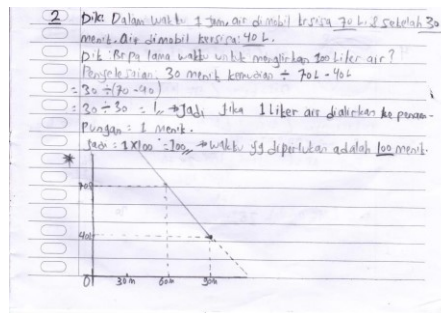 2 Dik: Dalam waktu 1 jam, air dimobil tersisa 70 L. & setelah 30
menit. Air dimobil tersisa: 40 L.
Dit: Brpa lama waktu untuk mengalirkan 100 Liter air?
Penyelesaian: 30 menit kemudian ÷ 70L - 40L
= 30 ÷ (70 - 40)
= 30 ÷ 30 = 1, → Jadi jika 1 Liter air dialirkan ke penam-
pungan = 1 menit.
Jadi = 1 x 100 = 100, → waktu yg diperlukan adalah 100 menit.
*
70
40
0 30m 60m 90m